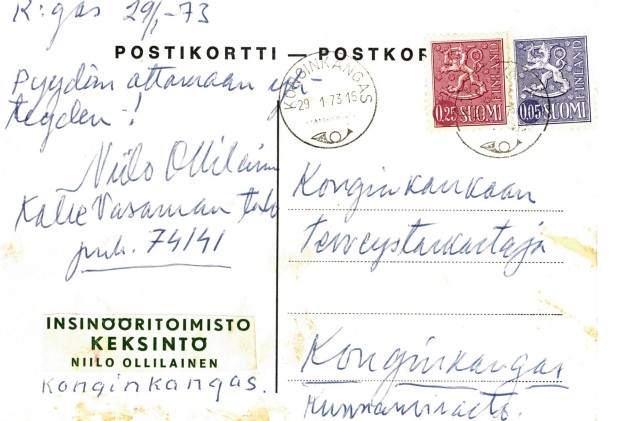 K:gas 29/1-73
POSTIKORTTI — POSTKOR
Pyydän ottamaan yh-
teyden -!
Niilo Ollilainen
Kalle Vasaman talo
puh. 74141
INSINÖÖRITOIMISTO
KEKSINTÖ
NIILO OLLILAINEN
Konginkangas.
KONGINKANGAS
29.1.73.15
0,25 SUOMI
FINLAND
0,05 SUOMI
FINLAND
Konginkankaan
Terveystarkastaja
Konginkangas
Kunnanvirasto.